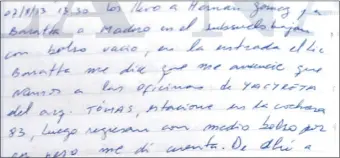 07/8/13 17:30 los llevo a Hernán Gomez y a
Baratta a Madero en el subsuelo bajan
con bolso vacio, en la entrada el Lic
Baratta me dice que me anuncie que
vamos a las oficinas de YACYRETA
del arq. TOMAS, estacione en la cochera
83, luego regresan con medio bolso por
peso me di cuenta. De ahí a